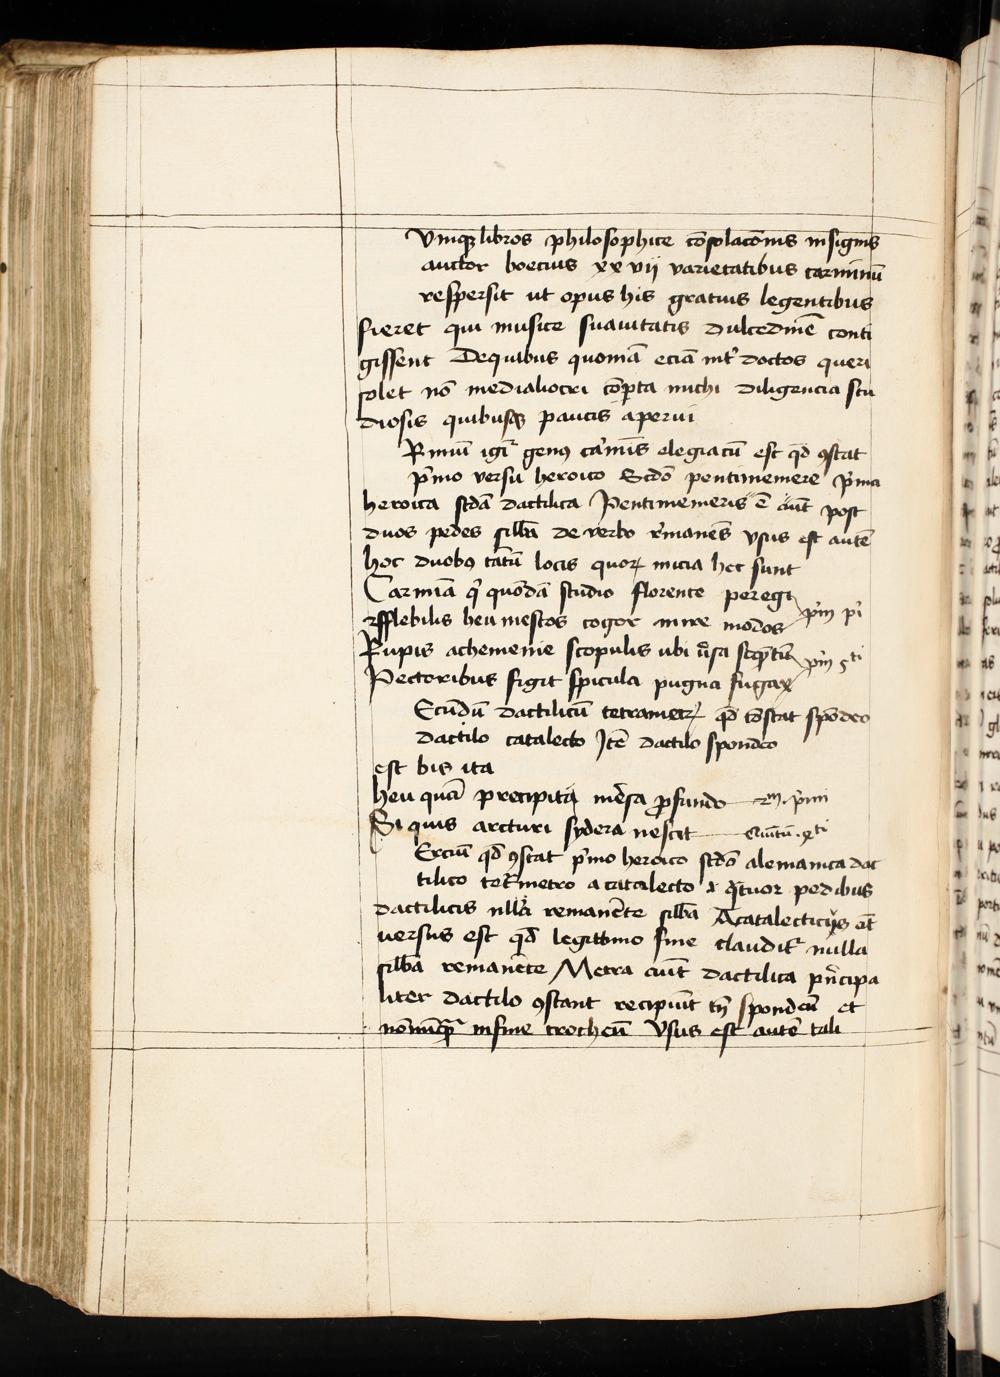 Vinqꝫ libros philosophice cōsolacōnis insignis
auctor boecius xxvij varietatibus carminū
respersit ut opus his gratius legentibus
fieret qui musice suavitatis dulcedinē conti
gissent Dequibus quoniā eciā int̄ doctos queri
solet nō mediallocri cōp̄ta michi diligencia stu
diosis quibusqꝫ paucis aperui
Rimū igit̄ genꝰ carmīs elegiacū est qd̄ ꝯstat
p̄mo versu heroico Scdō pentimemere p̄ma
heroica scdā dactilica Pentimemeris ē aūt post
duos pedes sillā de verbo r̄manens̄ Vsus est autē
hoc duobꝰ tātū locis quoꝝ inicia hec sunt
Carmīa q̄ quōdā studio florente peregi
fflebilis heu mestos cogor inire modos p̄m p̄i
Rupis achemenie scopulis ubi v̄sa seqn̄tū p̄m 5ti
Pectoribus figit spicula pugna fugax
Ecūdū dactilicū tetrametꝝ qd̄ cōstat spōdeo
dactilo catalecto Itē dactilo spondeo
est bis ita
heu quā precipiti mēsa ꝓfundo 2m p̄mi
Si quis arcturi sydera nescit Quītū 4ti
Erciū qd̄ ꝯstat p̄mo heroico scdō alemanica dac
tilico tet̄metro acatalecto ⁊ q̄tuor pedibus
dactilicis nulla remanēte sillā Acatalecticꝰ eī
versus est qd̄ legittimo fine claudit̄ nulla
sillā remanēte Metra aūt dactilica pn̄cipa
liter dactilo ꝯstant recipiūt tn̄ spondeū et
nōnūqꝫ in fine trocheū Vsus est autē tali